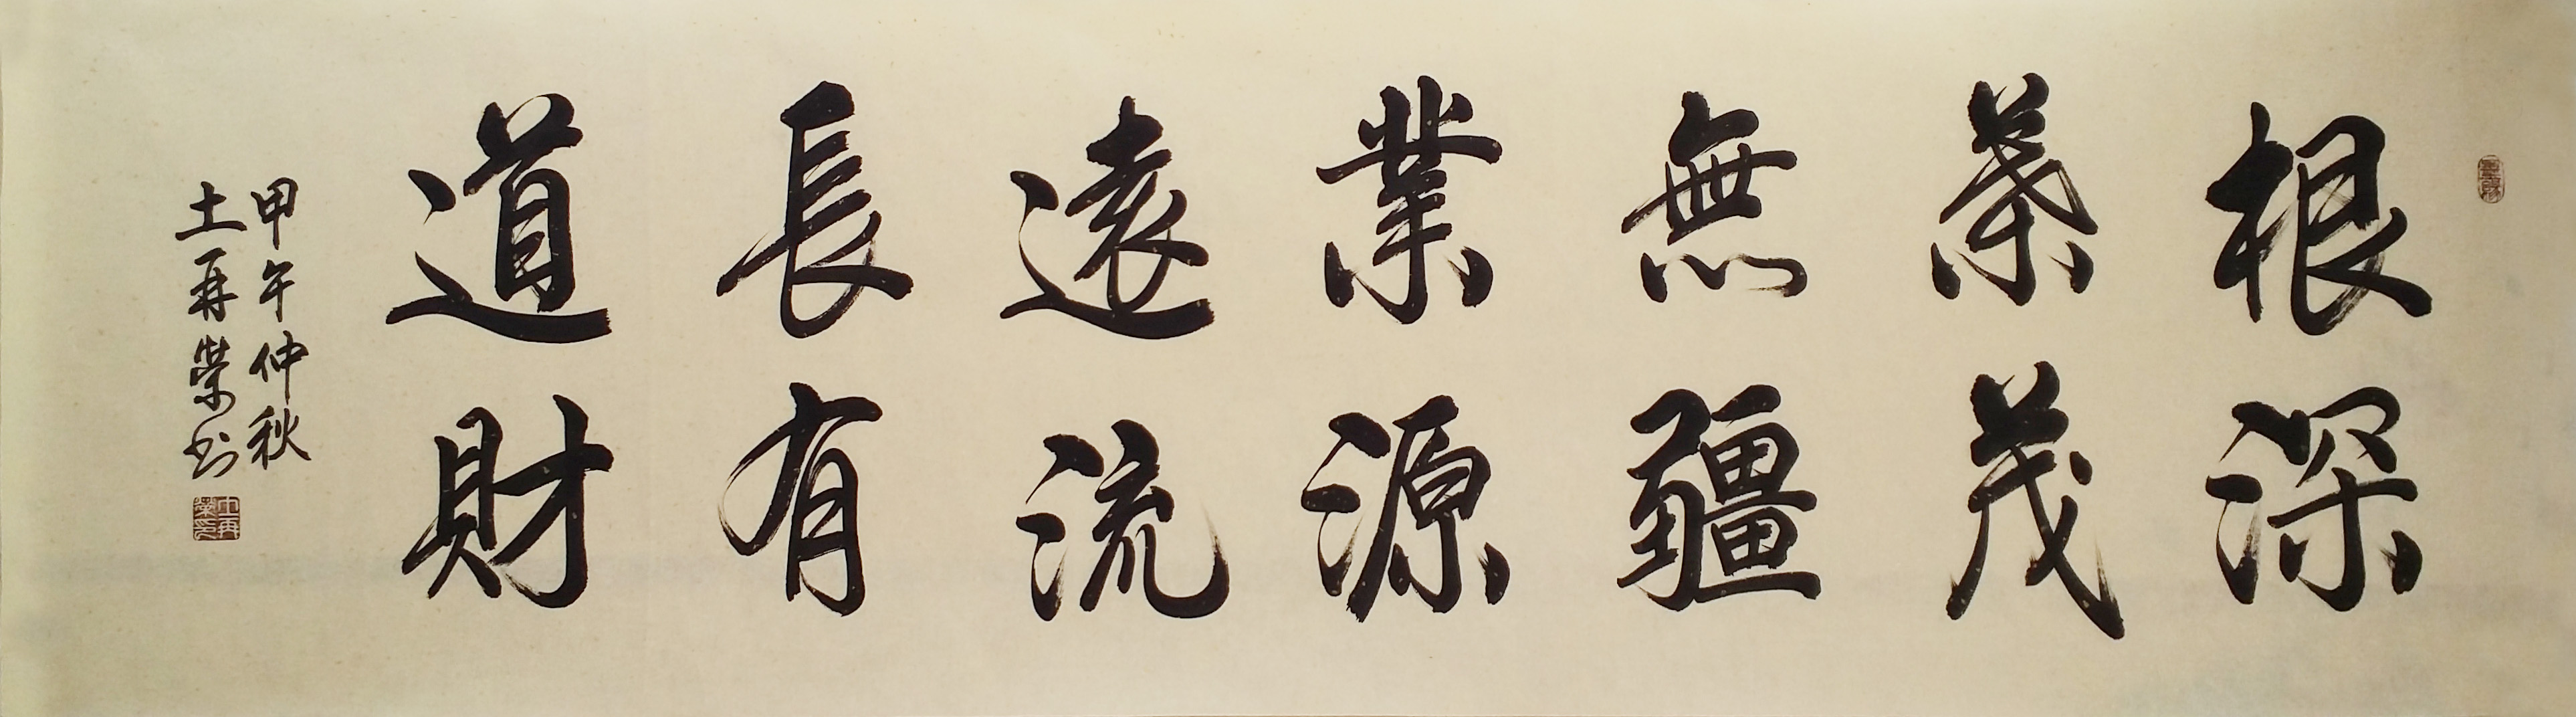 根深
葉茂
無疆
業源
遠流
長有
道財
甲午仲秋
王再榮書